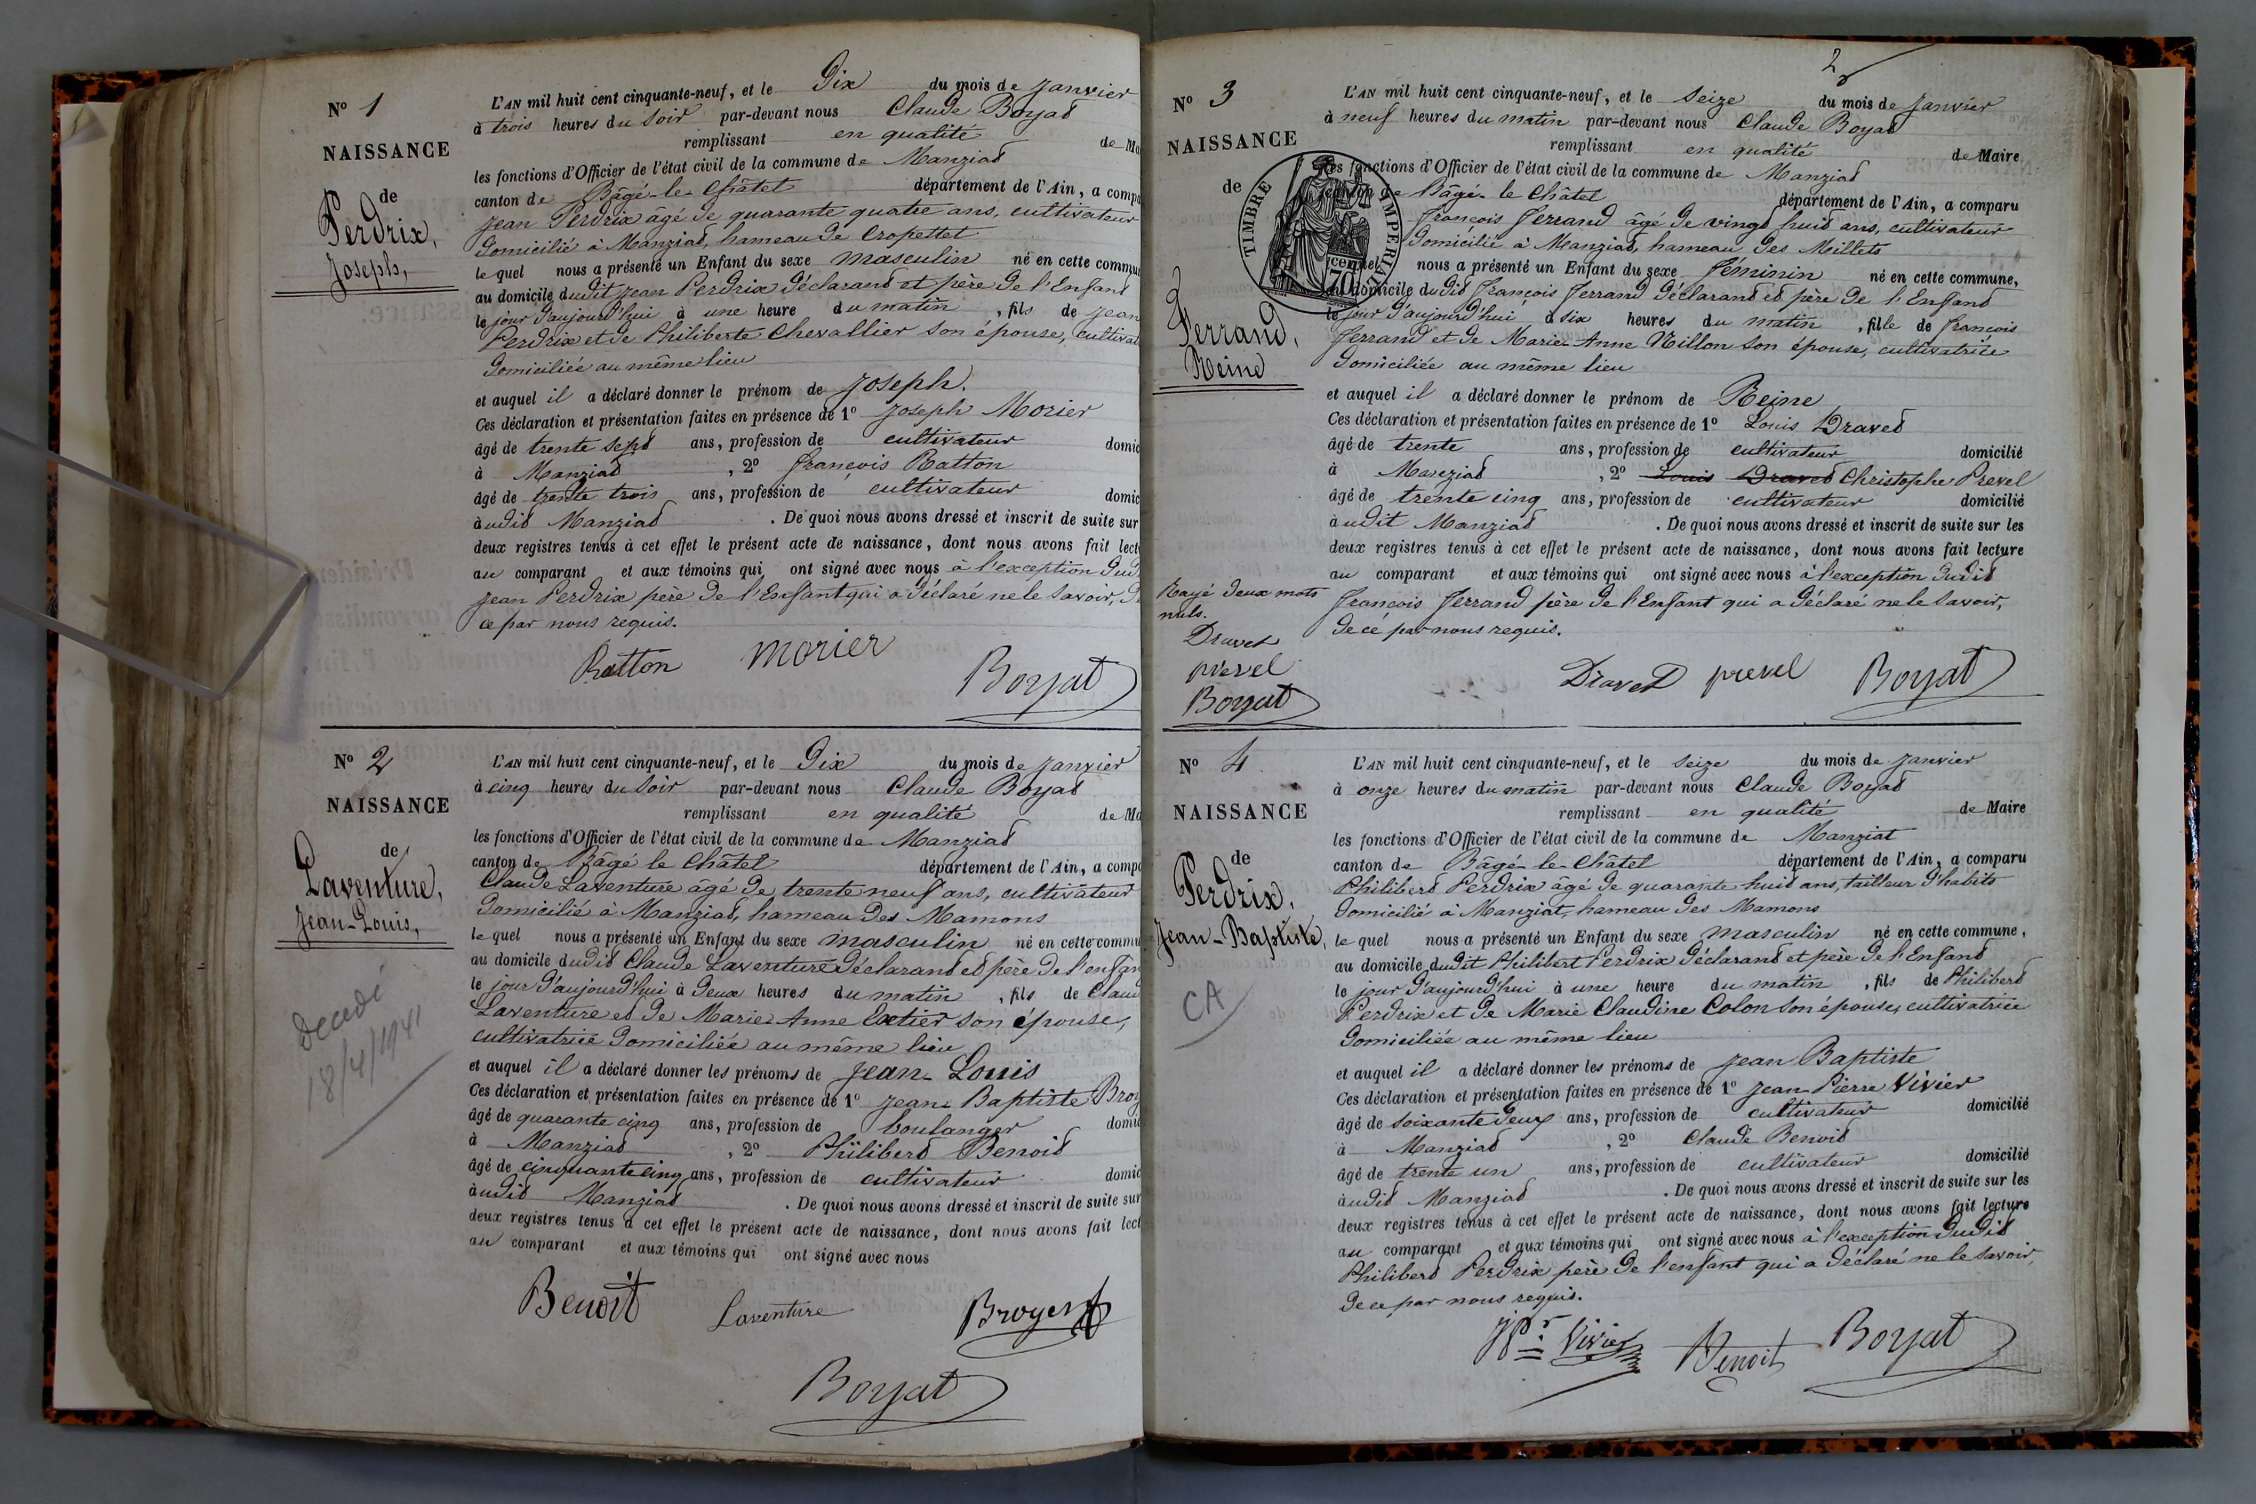 N° 1
NAISSANCE
de
Perdrix,
Joseph,
L'AN mil huit cent cinquante-neuf, et le Dix du mois de Janvier
à trois heures du Soir par-devant nous Claude Boyat
remplissant en qualité de Ma
les fonctions d'Officier de l'état civil de la commune de Manziat
canton de Bâgé-le-Châtel département de l'Ain, a compa
Jean Perdrix âgé de quarante quatre ans, cultivateur
Domicilié à Manziat, hameau de Cropettet
le quel nous a présenté un Enfant du sexe masculin né en cette commun
au domicile dudit Jean Perdrix Déclarant et père de l'Enfant
le jour d'aujourd'hui à une heure du matin, fils de Jean
Perdrix et de Philiberte Chevallier son épouse, cultivat
Domiciliée au même lieu
et auquel il a déclaré donner le prénom de Joseph.
Ces déclaration et présentation faites en présence de 1° Joseph Morier
âgé de trente sept ans, profession de cultivateur domic
à Manziat, 2° François Ratton
âgé de trente trois ans, profession de cultivateur domic
audit Manziat. De quoi nous avons dressé et inscrit de suite sur
deux registres tenus à cet effet le présent acte de naissance, dont nous avons fait lect
au comparant et aux témoins qui ont signé avec nous à l'exception dud
Jean Perdrix père de l'Enfant qui a déclaré ne le savoir, D
ce par nous requis.
Ratton Morier Boyat
N° 2
NAISSANCE
de
Laventure,
Jean-Louis,
Decedé
18/4/1941
L'AN mil huit cent cinquante-neuf, et le Dix du mois de Janvier
à cinq heures du Soir par-devant nous Claude Boyat
remplissant en qualité de Ma
les fonctions d'Officier de l'état civil de la commune de Manziat
canton de Bâgé le Châtel département de l'Ain, a compa
Claude Laventure âgé de trente neuf ans, cultivateur
Domicilié à Manziat, hameau des Mamons
le quel nous a présenté un Enfant du sexe masculin né en cette commu
au domicile dudit Claude Laventure Déclarant et père de l'enfan
le jour d'aujourd'hui à Deux heures du matin, fils de Claud
Laventure et de Marie-Anne Extier son épouse,
cultivatrice Domiciliée au même lieu
et auquel il a déclaré donner les prénoms de Jean-Louis
Ces déclaration et présentation faites en présence de 1° Jean-Baptiste Broy
âgé de quarante cinq ans, profession de boulanger domic
à Manziat, 2° Philibert Benoit
âgé de cinquante cinq ans, profession de cultivateur domic
audit Manziat. De quoi nous avons dressé et inscrit de suite sur
deux registres tenus à cet effet le présent acte de naissance, dont nous avons fait lect
au comparant et aux témoins qui ont signé avec nous
Benoit Laventure Broyer
Boyat
2
N° 3
NAISSANCE
de
TIMBRE IMPERIAL
70 cent
Ferrand,
Reine
Rayé deux mots
nuls.
Dravet
prevel
Boyat
L'AN mil huit cent cinquante-neuf, et le Seize du mois de Janvier
à neuf heures du matin par-devant nous Claude Boyat
remplissant en qualité de Maire
les fonctions d'Officier de l'état civil de la commune de Manziat
canton de Bâgé-le Châtel département de l'Ain, a comparu
François Ferrand âgé de vingt huit ans, cultivateur
Domicilié à Manziat, hameau des Millets
lequel nous a présenté un Enfant du sexe féminin né en cette commune,
au domicile dudit François Ferrand Déclarant et père de l'Enfant
le jour d'aujourd'hui à six heures du matin, fille de François
Ferrand et de Marie-Anne Nillon son épouse, cultivatrice
Domiciliée au même lieu
et auquel il a déclaré donner le prénom de Reine
Ces déclaration et présentation faites en présence de 1° Louis Dravet
âgé de trente ans, profession de cultivateur domicilié
à Manziat, 2° Louis Dravet Christophe Prevel
âgé de trente cinq ans, profession de cultivateur domicilié
audit Manziat. De quoi nous avons dressé et inscrit de suite sur les
deux registres tenus à cet effet le présent acte de naissance, dont nous avons fait lecture
au comparant et aux témoins qui ont signé avec nous à l'exception dudit
François Ferrand père de l'Enfant qui a déclaré ne le savoir,
de ce par nous requis.
Dravet prevel Boyat
N° 4
NAISSANCE
de
Perdrix,
Jean-Baptiste,
CA
L'AN mil huit cent cinquante-neuf, et le Seize du mois de Janvier
à onze heures du matin par-devant nous Claude Boyat
remplissant en qualité de Maire
les fonctions d'Officier de l'état civil de la commune de Manziat
canton de Bâgé-le-Châtel département de l'Ain, a comparu
Philibert Perdrix âgé de quarante huit ans, tailleur d'habits
Domicilié à Manziat, hameau des Mamons
le quel nous a présenté un Enfant du sexe masculin né en cette commune,
au domicile dudit Philibert Perdrix Déclarant et père de l'Enfant
le jour d'aujourd'hui à une heure du matin, fils de Philibert
Perdrix et de Marie Claudine Colon son épouse, cultivatrice
Domiciliée au même lieu
et auquel il a déclaré donner les prénoms de Jean Baptiste
Ces déclaration et présentation faites en présence de 1° Jean-Pierre Vivier
âgé de soixante deux ans, profession de cultivateur domicilié
à Manziat, 2° Claude Benoit
âgé de trente un ans, profession de cultivateur domicilié
audit Manziat. De quoi nous avons dressé et inscrit de suite sur les
deux registres tenus à cet effet le présent acte de naissance, dont nous avons fait lecture
au comparant et aux témoins qui ont signé avec nous à l'exception dudit
Philibert Perdrix père de l'enfant qui a déclaré ne le savoir,
de ce par nous requis.
JPr Vivier Benoit Boyat